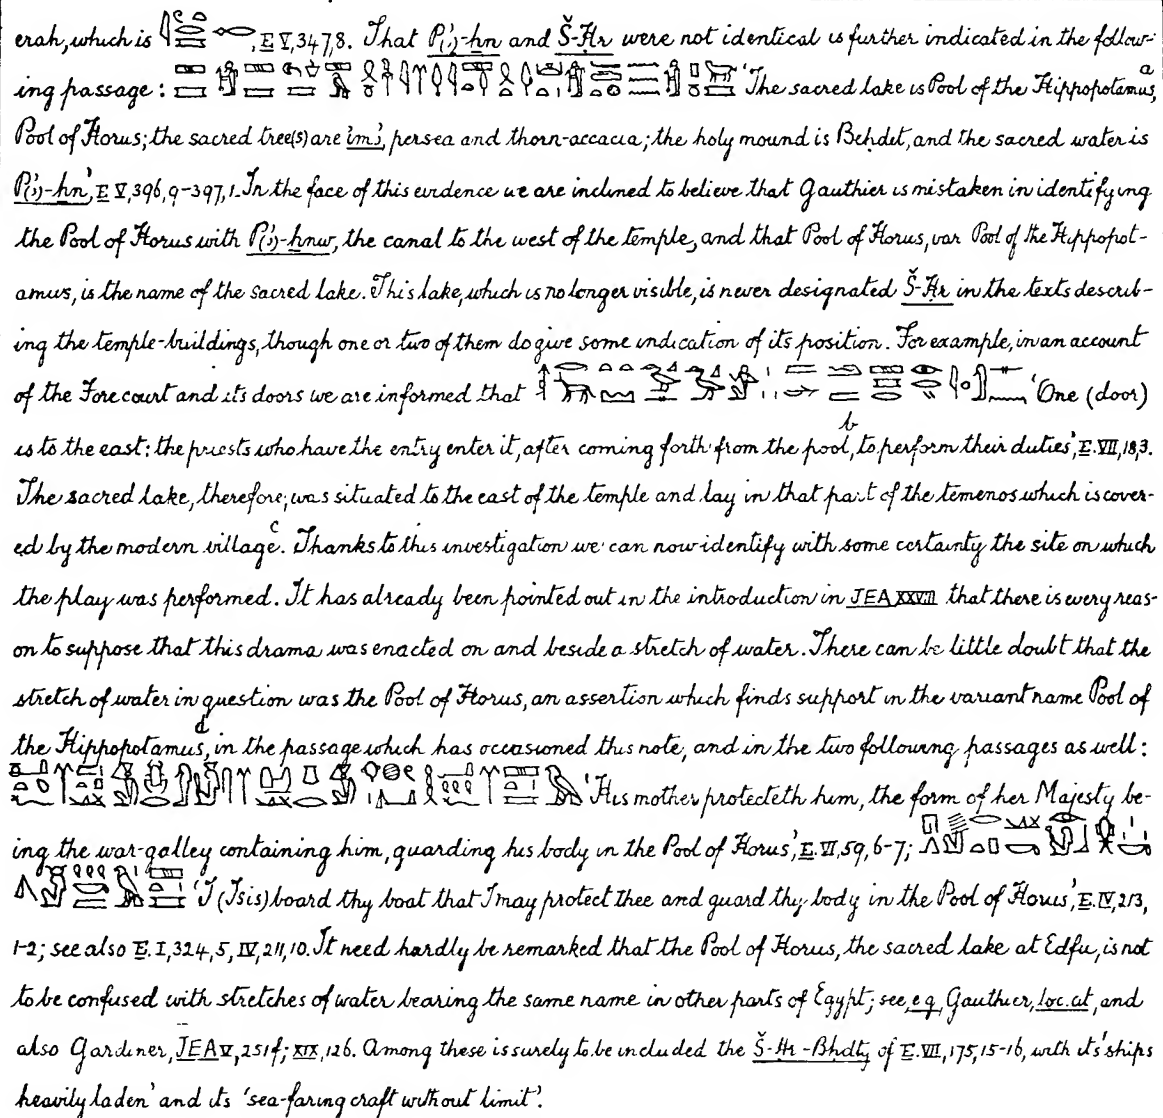 erah, which is , E V, 347, 8. That P(ꜣ)-ḫn and Š-Ḥr were not identical is further indicated in the follow-
ing passage: 'The sacred lake is Pool of the Hippopotamus,ᵃ
Pool of Horus; the sacred tree(s) are imꜣ, persea and thorn-accacia; the holy mound is Beḥdet, and the sacred water is
P(ꜣ)-ḫn', E V, 396, 9-397, 1. In the face of this evidence we are inclined to believe that Gauthier is mistaken in identifying
the Pool of Horus with P(ꜣ)-ḫnw, the canal to the west of the temple, and that Pool of Horus, var Pool of the Hippopot-
amus, is the name of the sacred lake. This lake, which is no longer visible, is never designated Š-Ḥr in the texts describ-
ing the temple-buildings, though one or two of them do give some indication of its position. For example, in an account
of the Forecourt and its doors we are informed that 'One (door)
is to the east: the priests who have the entry enter it, after coming forth from the pool,ᵇ to perform their duties', E. VII, 18, 3.
The sacred lake, therefore, was situated to the east of the temple and lay in that part of the temenos which is cover-
ed by the modern villageᶜ. Thanks to this investigation we can now identify with some certainty the site on which
the play was performed. It has already been pointed out in the introduction in JEA XXVIII that there is every reas-
on to suppose that this drama was enacted on and beside a stretch of water. There can be little doubt that the
stretch of water in question was the Pool of Horus, an assertion which finds support in the variant name Pool of
the Hippopotamus,ᵈ in the passage which has occasioned this note, and in the two following passages as well:
'His mother protecteth him, the form of her Majesty be-
ing the war-galley containing him, guarding his body in the Pool of Horus', E. VI, 59, 6-7;
'I (Isis) board thy boat that I may protect thee and guard thy body in the Pool of Horus', E. IV, 213,
1-2; see also E. I, 324, 5, IV, 211, 10. It need hardly be remarked that the Pool of Horus, the sacred lake at Edfu, is not
to be confused with stretches of water bearing the same name in other parts of Egypt; see, e.g. Gauthier, loc. cit, and
also Gardiner, JEA V, 251 f; XIX, 126. Among these is surely to be included the Š-Ḥr-Bḥdty of E. VII, 175, 15-16, with its 'ships
heavily laden' and its 'sea-faring craft without limit'.